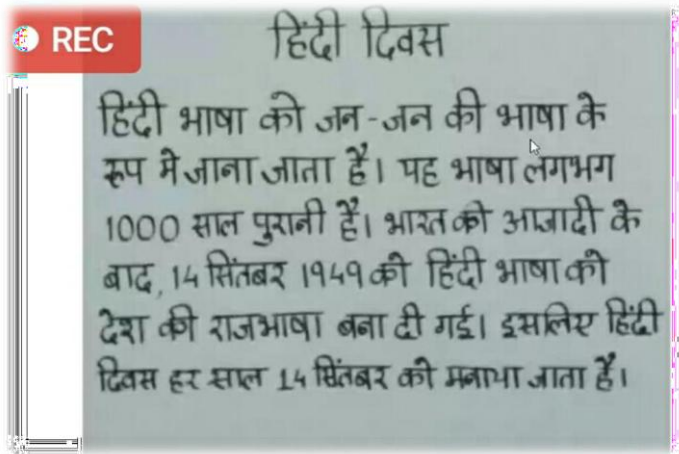 REC
हिंदी दिवस
हिंदी भाषा को जन-जन की भाषा के
रूप मे जाना जाता है। यह भाषा लगभग
1000 साल पुरानी है। भारत की आजादी के
बाद, 14 सितंबर 1949 को हिंदी भाषा को
देश की राजभाषा बना दी गई। इसलिए हिंदी
दिवस हर साल 14 सितंबर को मनाया जाता है।